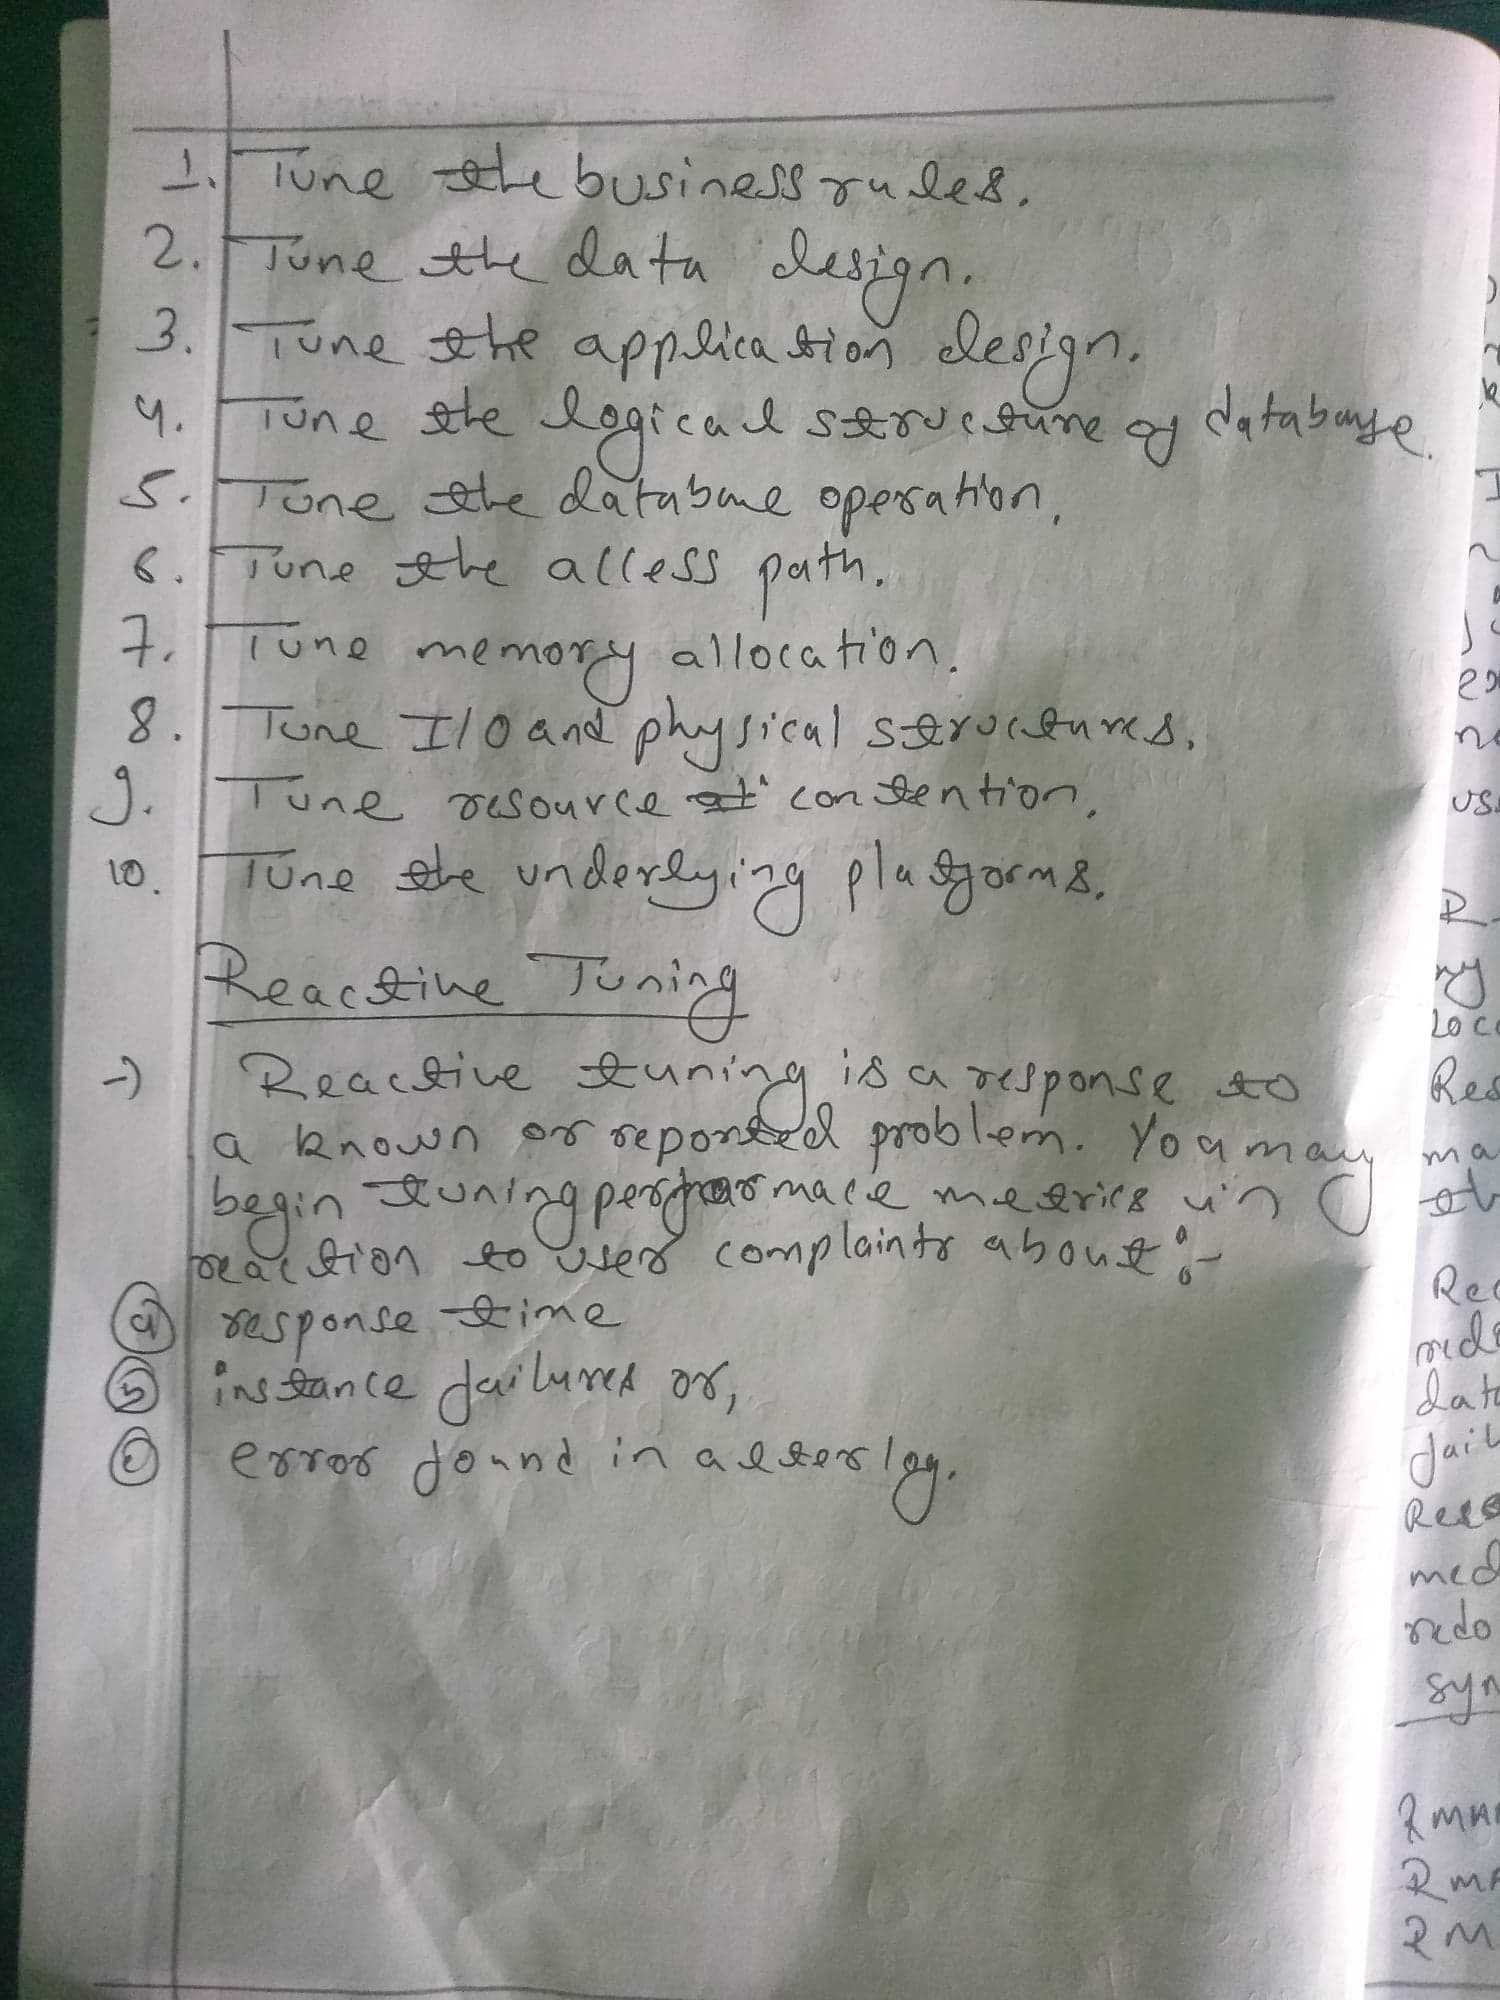 1. Tune the business rules.
2. Tune the data design.
3. Tune the application design.
4. Tune the logical structure of database.
5. Tune the database operation.
6. Tune the access path.
7. Tune memory allocation.
8. Tune I/O and physical structures.
9. Tune resource contention.
10. Tune the underlying platforms.
Reactive Tuning
→ Reactive tuning is a response to
a known or reported problem. You may
begin tuning performace metrics in
reaction to user complaints about :-
a response time
b instance failures or,
c error found in alter log.
R
Loc
Res
ma
Rec
dat
fail
Reso
med
redo
syn
RMAN
RMA
RM